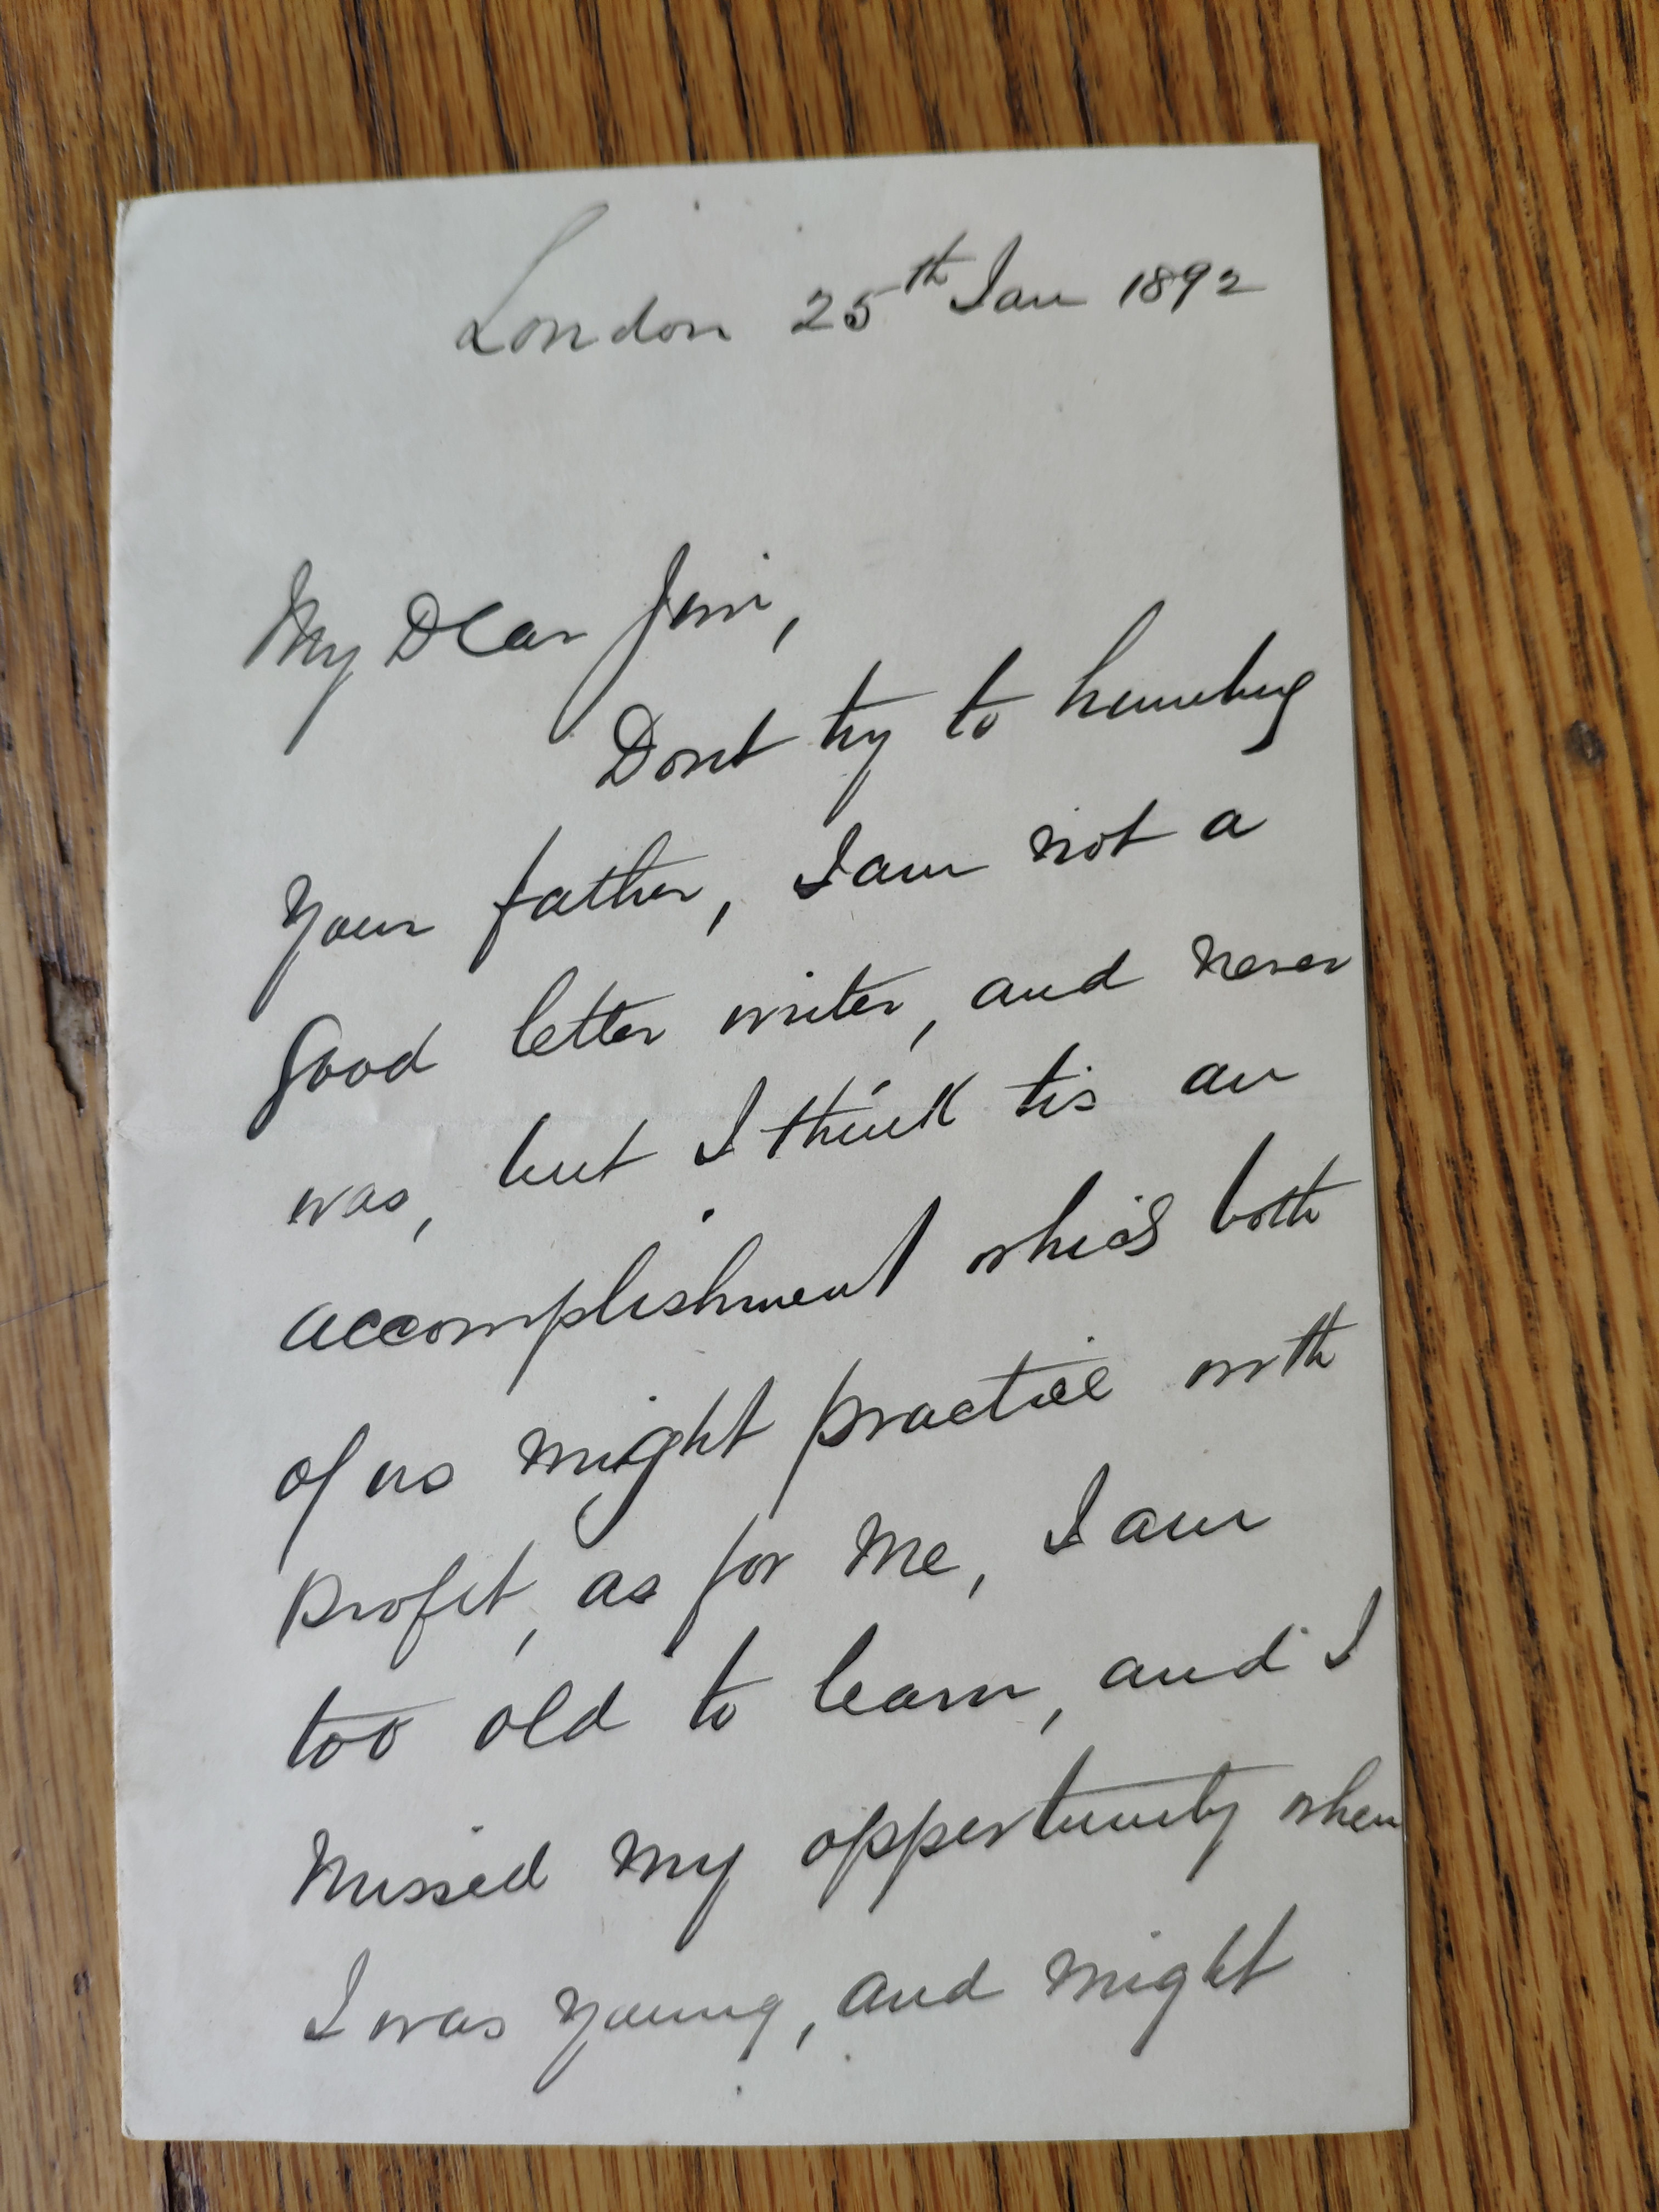 London 25th Jan 1892
My Dear Jim,
Dont try to humbug
your father, I am not a
good letter writer, and never
was, but I think tis an
accomplishment which both
of us might practice with
profit, as for me, I am
too old to learn, and I
missed my opportunity when
I was young, and might